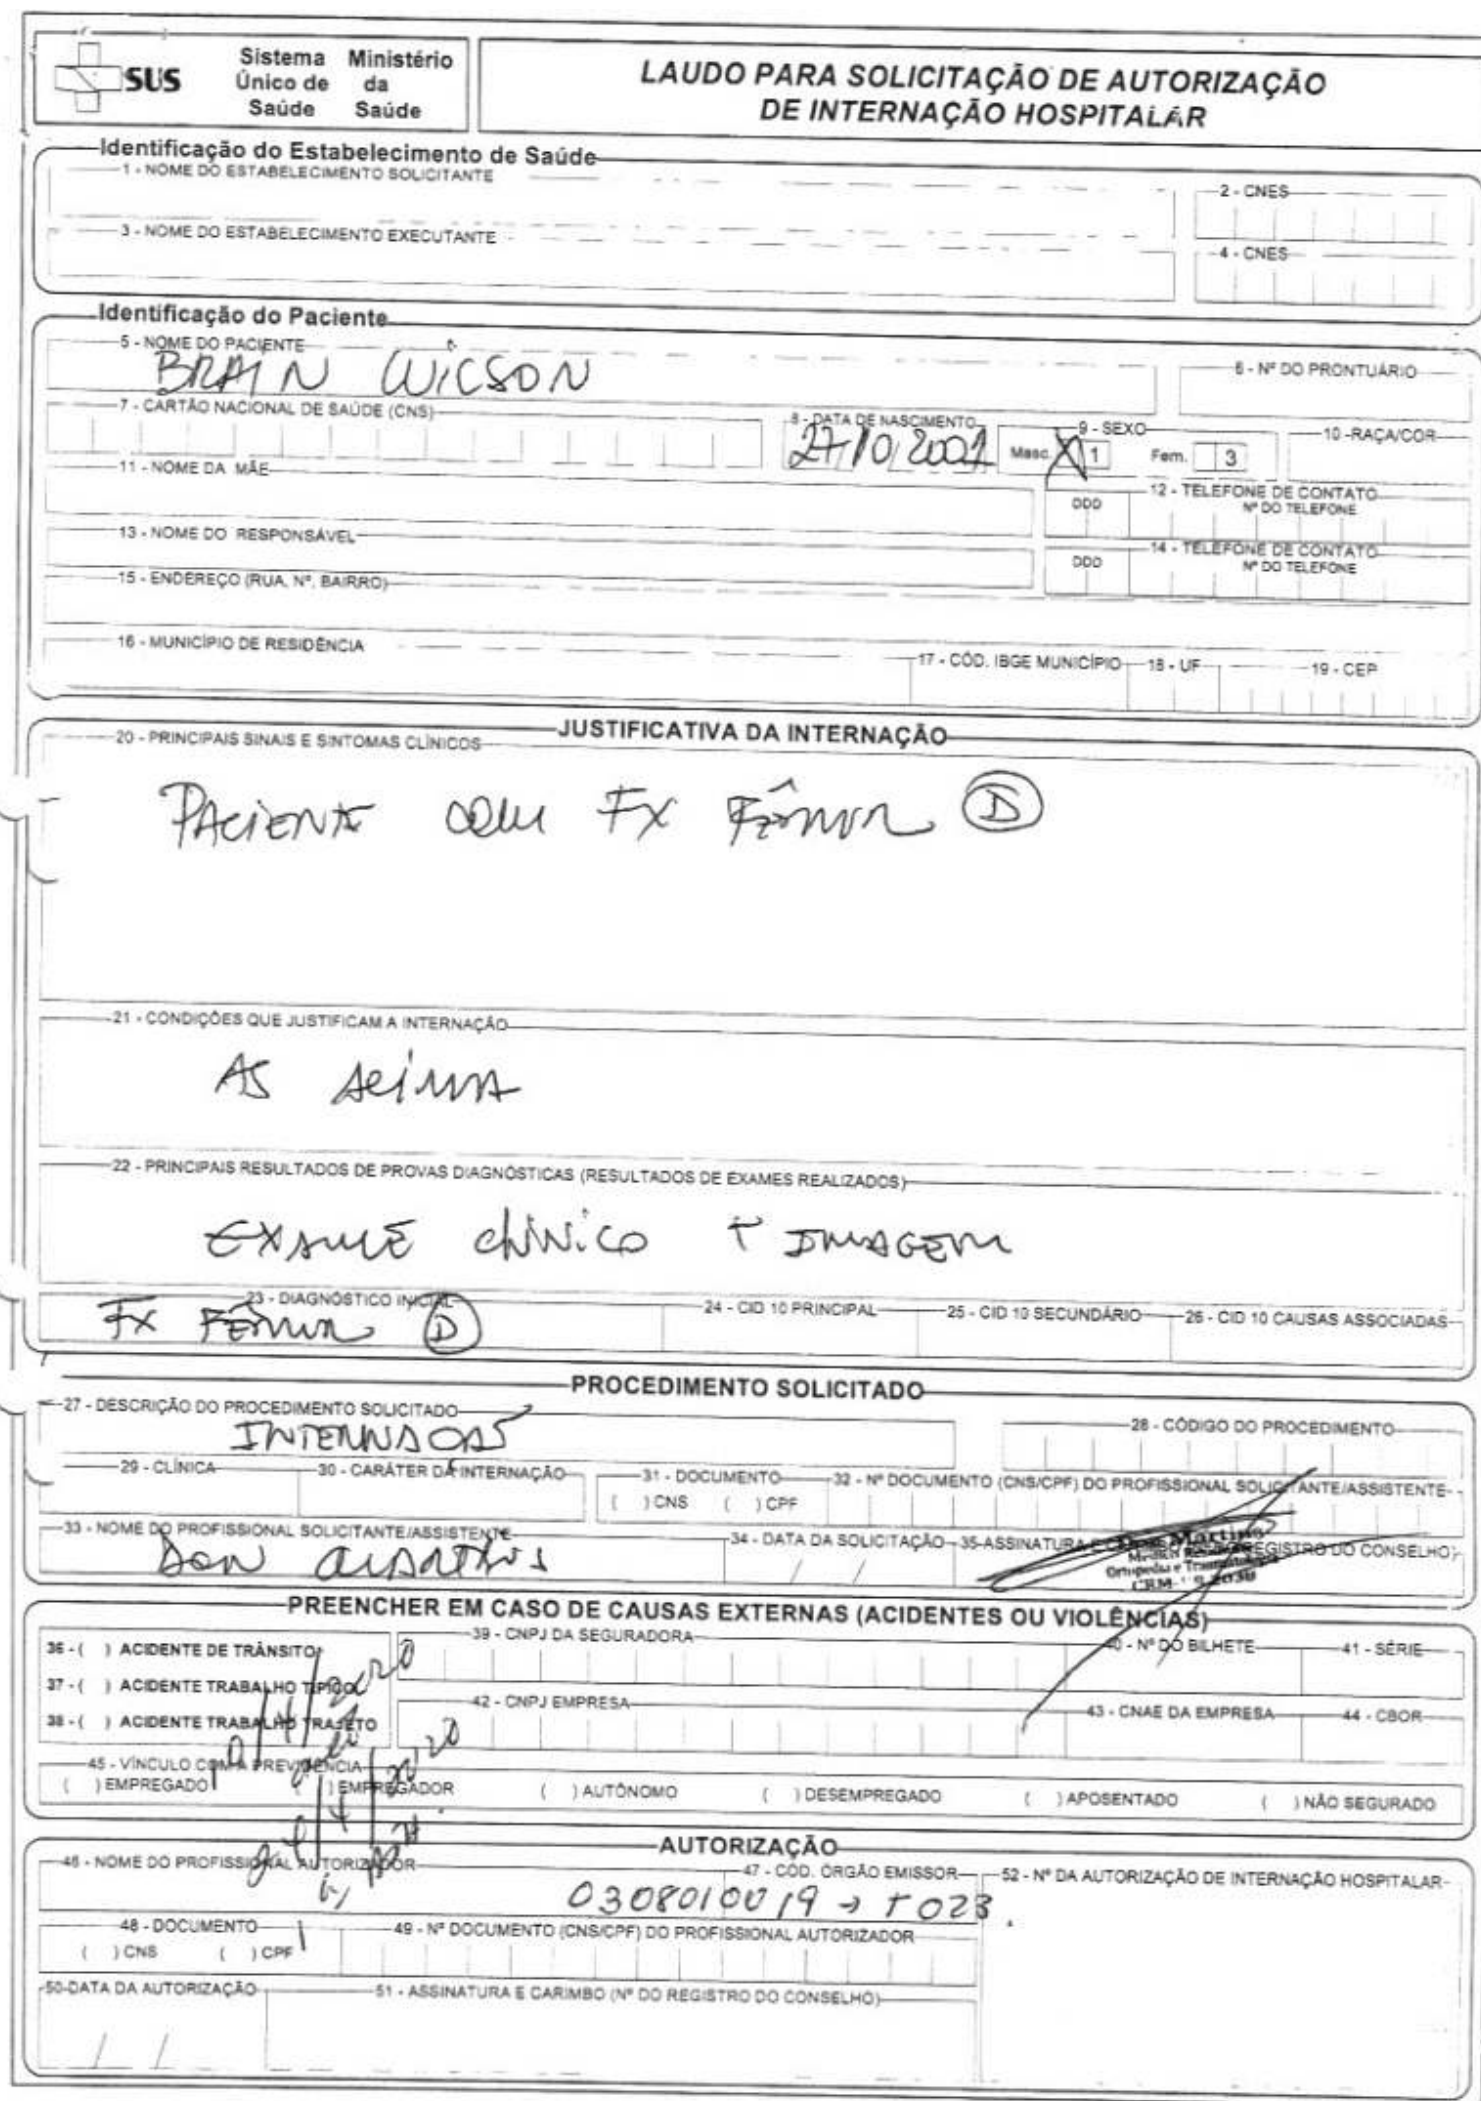 SUS
Sistema Único de Saúde
Ministério da Saúde
LAUDO PARA SOLICITAÇÃO DE AUTORIZAÇÃO
DE INTERNAÇÃO HOSPITALAR
Identificação do Estabelecimento de Saúde
1 - NOME DO ESTABELECIMENTO SOLICITANTE
2 - CNES
3 - NOME DO ESTABELECIMENTO EXECUTANTE
4 - CNES
Identificação do Paciente
5 - NOME DO PACIENTE
6 - Nº DO PRONTUÁRIO
BRAIN WILSON
7 - CARTÃO NACIONAL DE SAÚDE (CNS)
8 - DATA DE NASCIMENTO
9 - SEXO
10 - RAÇA/COR
27/10/2001 Masc. X 1 Fem. 3
11 - NOME DA MÃE
12 - TELEFONE DE CONTATO
DDD Nº DO TELEFONE
13 - NOME DO RESPONSÁVEL
14 - TELEFONE DE CONTATO
DDD Nº DO TELEFONE
15 - ENDEREÇO (RUA, Nº, BAIRRO)
16 - MUNICÍPIO DE RESIDÊNCIA
17 - CÓD. IBGE MUNICÍPIO
18 - UF
19 - CEP
JUSTIFICATIVA DA INTERNAÇÃO
20 - PRINCIPAIS SINAIS E SINTOMAS CLÍNICOS
PACIENTE COM FX FÊMUR D
21 - CONDIÇÕES QUE JUSTIFICAM A INTERNAÇÃO
AS ACIMA
22 - PRINCIPAIS RESULTADOS DE PROVAS DIAGNÓSTICAS (RESULTADOS DE EXAMES REALIZADOS)
EXAME CLÍNICO + IMAGEM
23 - DIAGNÓSTICO INICIAL
24 - CID 10 PRINCIPAL
25 - CID 10 SECUNDÁRIO
26 - CID 10 CAUSAS ASSOCIADAS
FX FÊMUR D
PROCEDIMENTO SOLICITADO
27 - DESCRIÇÃO DO PROCEDIMENTO SOLICITADO
28 - CÓDIGO DO PROCEDIMENTO
29 - CLÍNICA
30 - CARÁTER DA INTERNAÇÃO
31 - DOCUMENTO
32 - Nº DOCUMENTO (CNS/CPF) DO PROFISSIONAL SOLICITANTE/ASSISTENTE
( ) CNS ( ) CPF
33 - NOME DO PROFISSIONAL SOLICITANTE/ASSISTENTE
34 - DATA DA SOLICITAÇÃO
35-ASSINATURA E REGISTRO DO CONSELHO)
Martins
Ortopedia e
CRM
PREENCHER EM CASO DE CAUSAS EXTERNAS (ACIDENTES OU VIOLÊNCIAS)
36 - ( ) ACIDENTE DE TRÂNSITO
39 - CNPJ DA SEGURADORA
40 - Nº DO BILHETE
41 - SÉRIE
37 - ( ) ACIDENTE TRABALHO TÍPICO
42 - CNPJ EMPRESA
43 - CNAE DA EMPRESA
44 - CBOR
38 - ( ) ACIDENTE TRABALHO TRAJETO
45 - VÍNCULO COM A PREVIDÊNCIA
( ) EMPREGADO ( ) EMPREGADOR ( ) AUTÔNOMO ( ) DESEMPREGADO ( ) APOSENTADO ( ) NÃO SEGURADO
AUTORIZAÇÃO
46 - NOME DO PROFISSIONAL AUTORIZADOR
47 - CÓD. ÓRGÃO EMISSOR
52 - Nº DA AUTORIZAÇÃO DE INTERNAÇÃO HOSPITALAR
0308010019 → T023
48 - DOCUMENTO
49 - Nº DOCUMENTO (CNS/CPF) DO PROFISSIONAL AUTORIZADOR
( ) CNS ( ) CPF
50-DATA DA AUTORIZAÇÃO
51 - ASSINATURA E CARIMBO (Nº DO REGISTRO DO CONSELHO)